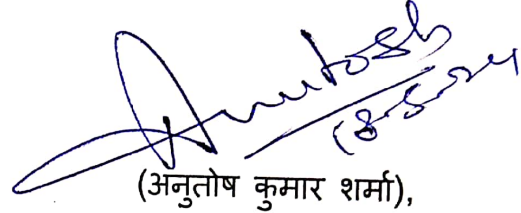 Anutosh
18-5-24
(अनुतोष कुमार शर्मा),